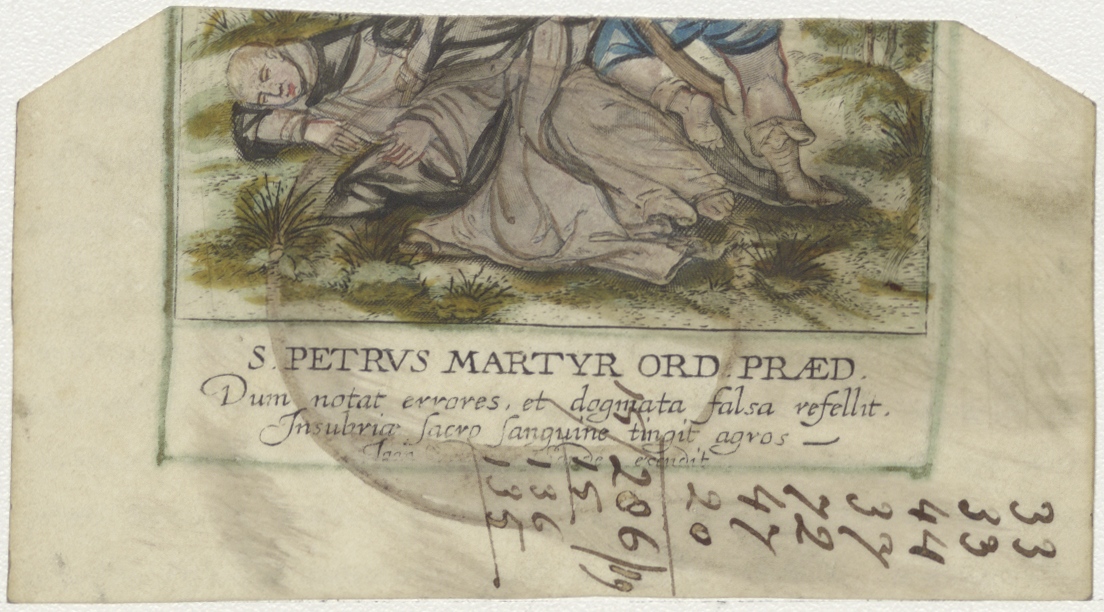 S. PETRVS MARTYR ORD. PRÆD.
Dum notat errores, et dogmata falsa refellit.
Insubriæ sacro sanguine tingit agros —
excudit
33
33
44
37
72
47
20
15/286/19
15
136
135